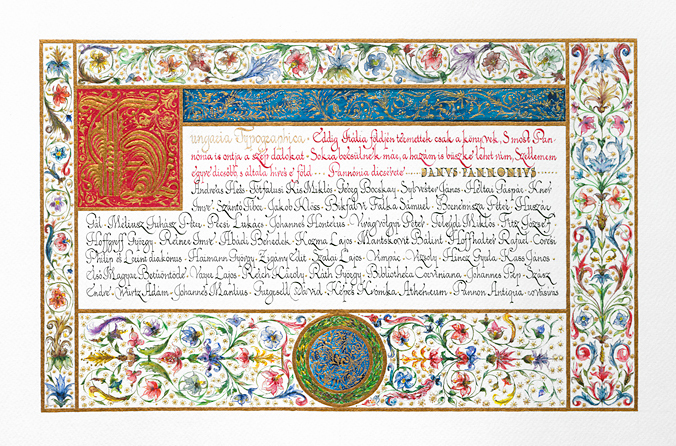 Hungaria Typographica · Eddig Itália földjén termettek csak a könyvek, S most Pan-
nónia is ontja a szép dalokat · Sokra becsülnek már, a hazám is büszke lehet rám, Szellemem
egyre dicsőbb, s általa híres e föld · Pannónia dicsérete JANVS PANNONIVS
Andreas Hess · Tótfalusi Kis Miklós · Georg Bocskay · Sylvester János · Heltai Gáspár · Kner
Imre · Szántó Tibor · Jakob Klöss · Bikfalvi Falka Sámuel · Bornemisza Péter · Huszár
Gál · Méliusz Juhász Péter · Pécsi Lukács · Johannes Honterus · Virágvölgyi Péter · Telegdi Miklós · Fitz József
Hoffgreff György · Reiner Imre · Abádi Benedek · Kozma Lajos · Mantskovit Bálint · Hoffhalter Rafael · Coresi
Philip és diakónus · Haimann György · Zigány Edit · Szalai Lajos · Vimpác · Vizsoly · Hincz Gyula · Kass János
Első Magyar Betűöntöde · Végh Lajos · Reich Károly · Ráth György · Bibliotheca Corviniana · Johannes Pap · Szász
Endre · Würtz Ádám · Johannes Manlius · Gutgesell Dávid · Képes Krónika · Athenæum · Pannon Antiqua